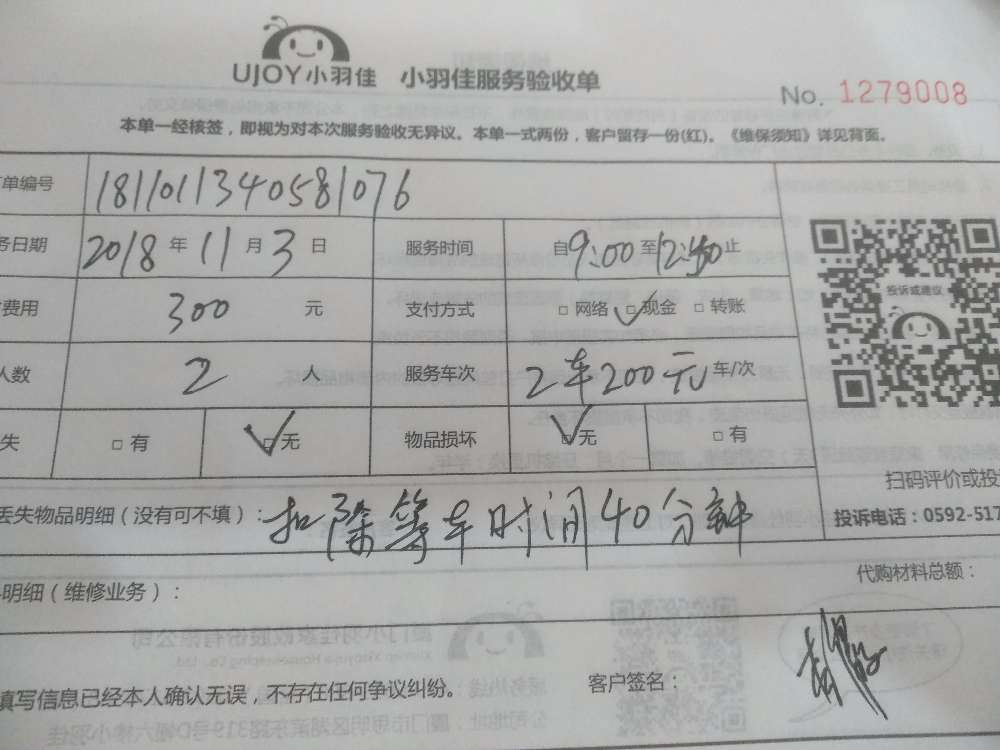 UJOY小羽佳 小羽佳服务验收单
No. 1279008
本单一经核签，即视为对本次服务验收无异议。本单一式两份，客户留存一份(红)。《维保须知》详见背面。
单编号 1811011340581076
务日期 2018年11月3日 服务时间 自9:00至12:40止
费用 300元 支付方式 □网络 □现金 □转账
投诉或建议
人数 2人 服务车次 2车200元车/次
失 □有 □无 物品损坏 □无 □有
扫码评价或投
丢失物品明细（没有可不填）：扣除等车时间40分钟
投诉电话：0592-517
明细（维修业务）：
代购材料总额：
填写信息已经本人确认无误，不存在任何争议纠纷。 客户签名：